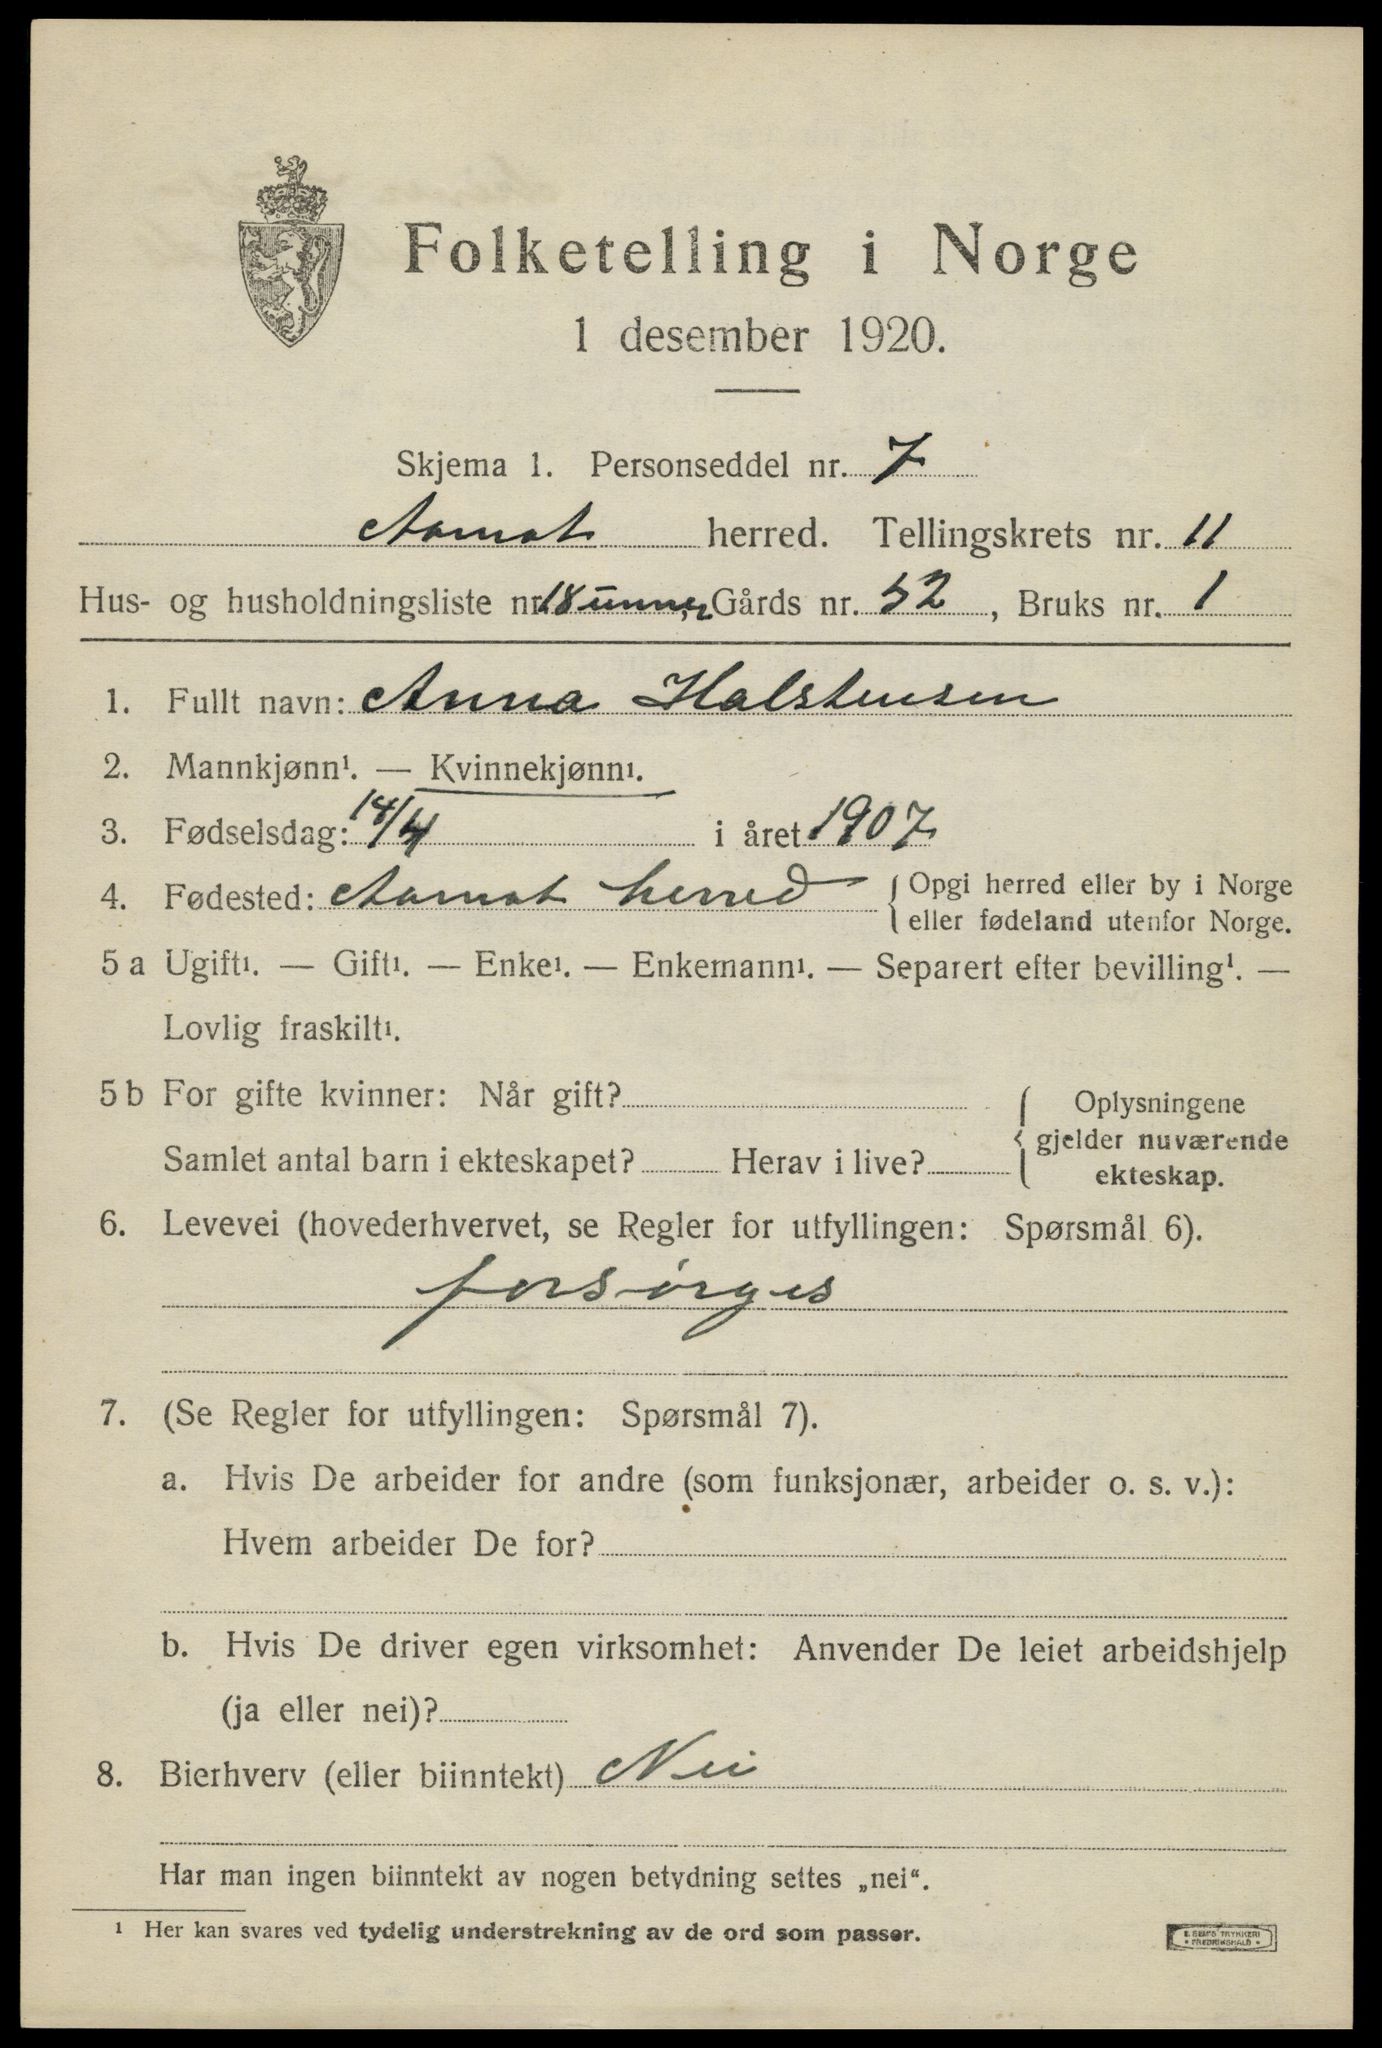 Folketelling i Norge
1 desember 1920.
Skjema 1. Personseddel nr. 7
Aamot herred. Tellingskrets nr. 11
Hus- og husholdningsliste nr. 18 Gårds nr. 52, Bruks nr. 1
1. Fullt navn: Anna Halstensen
2. Mannkjønn¹. — Kvinnekjønn¹.
3. Fødselsdag: 14/4 i året 1907
4. Fødested: Aamot herred { Opgi herred eller by i Norge
eller fødeland utenfor Norge.
5 a Ugift¹. — Gift¹. — Enke¹. — Enkemann¹. — Separert efter bevilling¹. —
Lovlig fraskilt¹.
5 b For gifte kvinner: Når gift?
Samlet antal barn i ekteskapet? Herav i live?
{ Oplysningene
gjelder nuværende
ekteskap.
6. Levevei (hovederhvervet, se Regler for utfyllingen: Spørsmål 6).
forsørges
7. (Se Regler for utfyllingen: Spørsmål 7).
a. Hvis De arbeider for andre (som funksjonær, arbeider o. s. v.):
Hvem arbeider De for?
b. Hvis De driver egen virksomhet: Anvender De leiet arbeidshjelp
(ja eller nei)?
8. Bierhverv (eller biinntekt) Nei
Har man ingen biinntekt av nogen betydning settes „nei“.
¹ Her kan svares ved tydelig understrekning av de ord som passer.
E. SEM'S TRYKKERI
• FREDRIKSHALD •